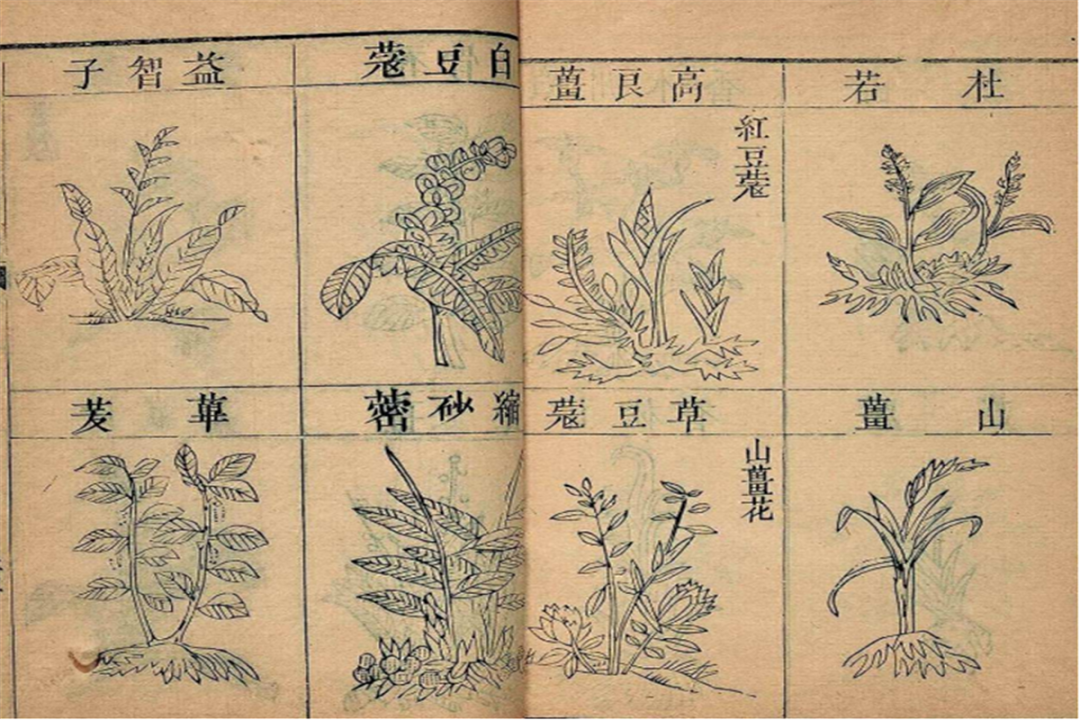 杜若
高良薑
紅豆蔻
白豆蔻
益智子
山薑
草豆蔻
山薑花
縮砂蔤
蓽茇